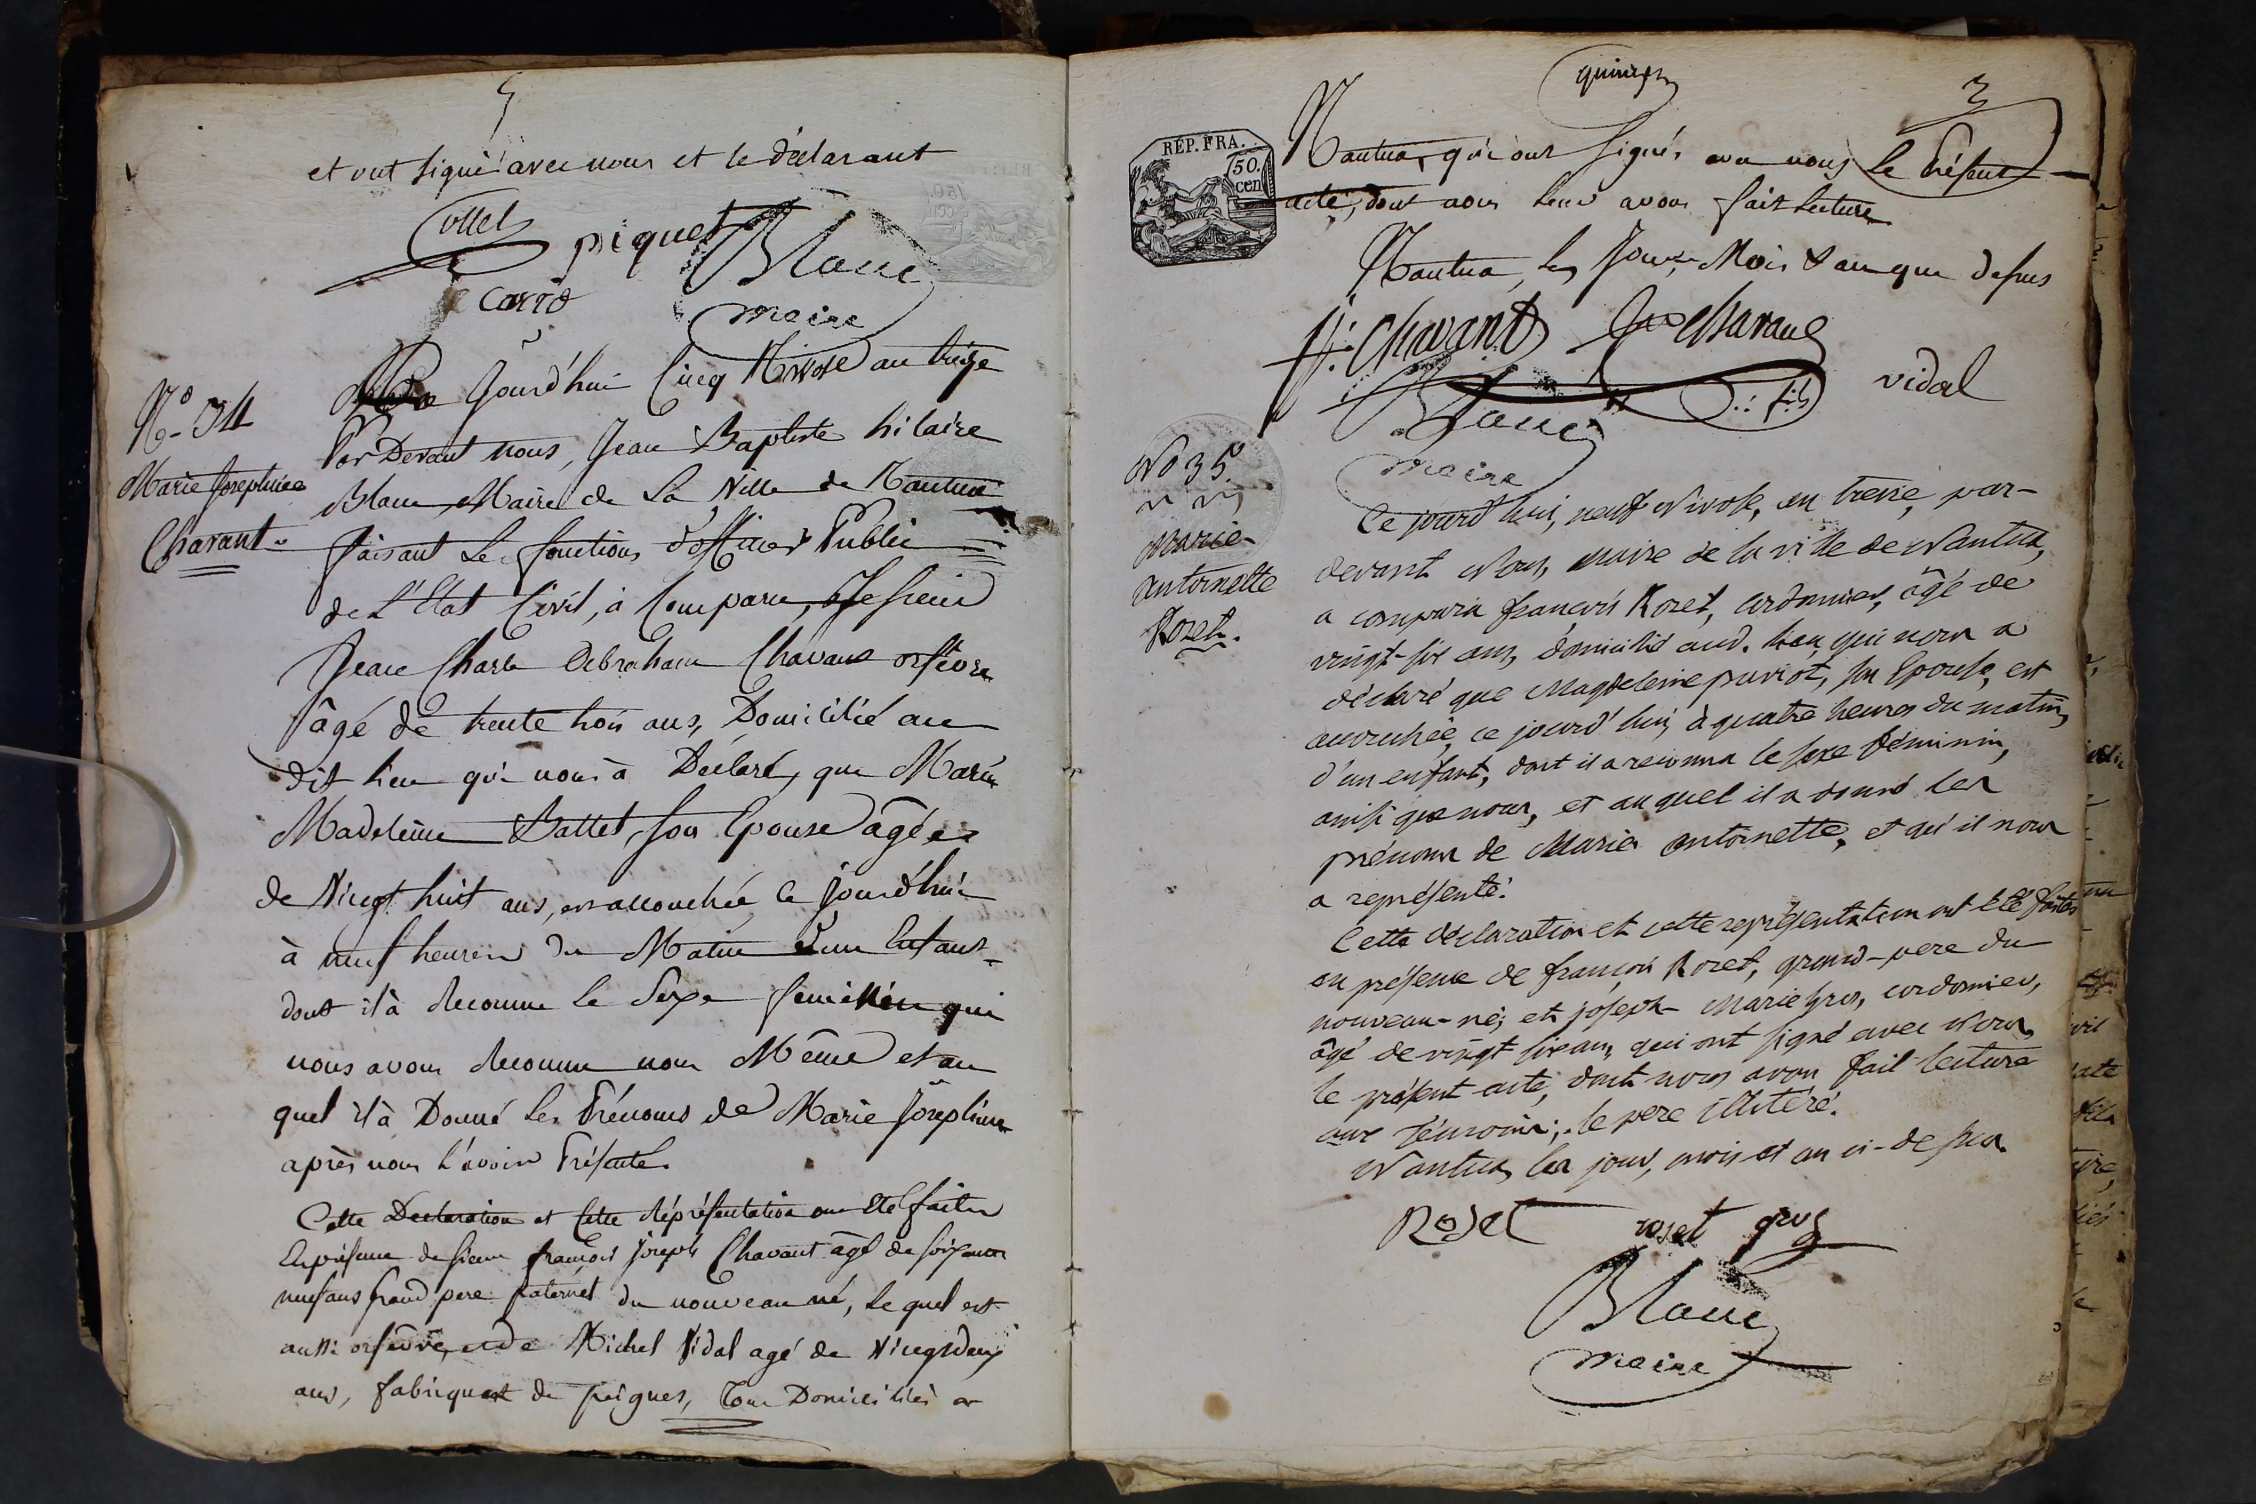 et ont signé avec nous et le déclarant
Collet
piquet
Blanc
Carrd
maire
N.º 34
Marie Josephine
Chavant
Jourd'hui Cinq Nivose an treize
Par Devant nous, Jean Baptiste hilaire
Blanc, Maire de La Ville de Nantua
faisant Les fonctions d'officier Public
de L'Etat Civil, à Comparu, Le sieur
Jean Charle Abraham Chavant orfèvre
âgé de trente trois ans, Domicilié au
dit lieu qui nous à Déclaré, que Marie
Madeleine Battet, son Epouse âgée
de Vingt huit ans, est accouchée ce jourd'hui
à neuf heures du Matin d'un Enfant
dont il à Reconnu le Sexe feminin qui
nous avons Reconnu nous Même et au
quel il à Donné Les Prénoms de Marie Josephine
après nous L'avoir Présenté.
Cette Declaration et Cette Réprésentation ont été faites
En présence de sieur françois joseph Chavant âgé de soixante
neuf ans grand pere paternel du nouveau né, Le quel est
aussi orfèvre, et de Michel Vidal agé de Vingt deux
ans, fabriquant de peignes, Tous Domiciliés a
3
RÉP. FRA.
50.
cen
Nantua, qui ont signés avec nous Le Présent
acte, dont nous Leur avons fait Lecture
Nantua, Les Jour, Mois & an que dessus
f.J. Chavant
Chavant
fils
vidal
Blanc
maire
No 35.
Marie
Antoinette
Rozet.
Ce jourd'hui, neuf Nivose, an treize, par-
devant Nous, maire de la ville de Nantua,
a comparu françois Rozet, cordonnier, âgé de
vingt-six ans, domicilié aud. lieu, qui nous a
déclaré que Magdeleine puvriot, son Epouse, est
accouchée, ce jourd'hui, à quatre heures du matin,
d'un enfant, dont il a reconnu le sexe féminin,
ainsi que nous, et auquel il a donné les
prénoms de Marie Antoinette, et qu'il nous
a représenté.
Cette déclaration et cette représentation ont été faites
en présence de françois Rozet, grand-pere du
nouveau-né; et joseph Marie Gros, cordonnier,
âgé de vingt six ans, qui ont signé avec Nous
le présent acte, dont nous avons fait lecture
aux témoins; le pere illitéré.
Nantua, les jour, mois et an ci-dessus.
Roset
roset
gros
Blanc
maire